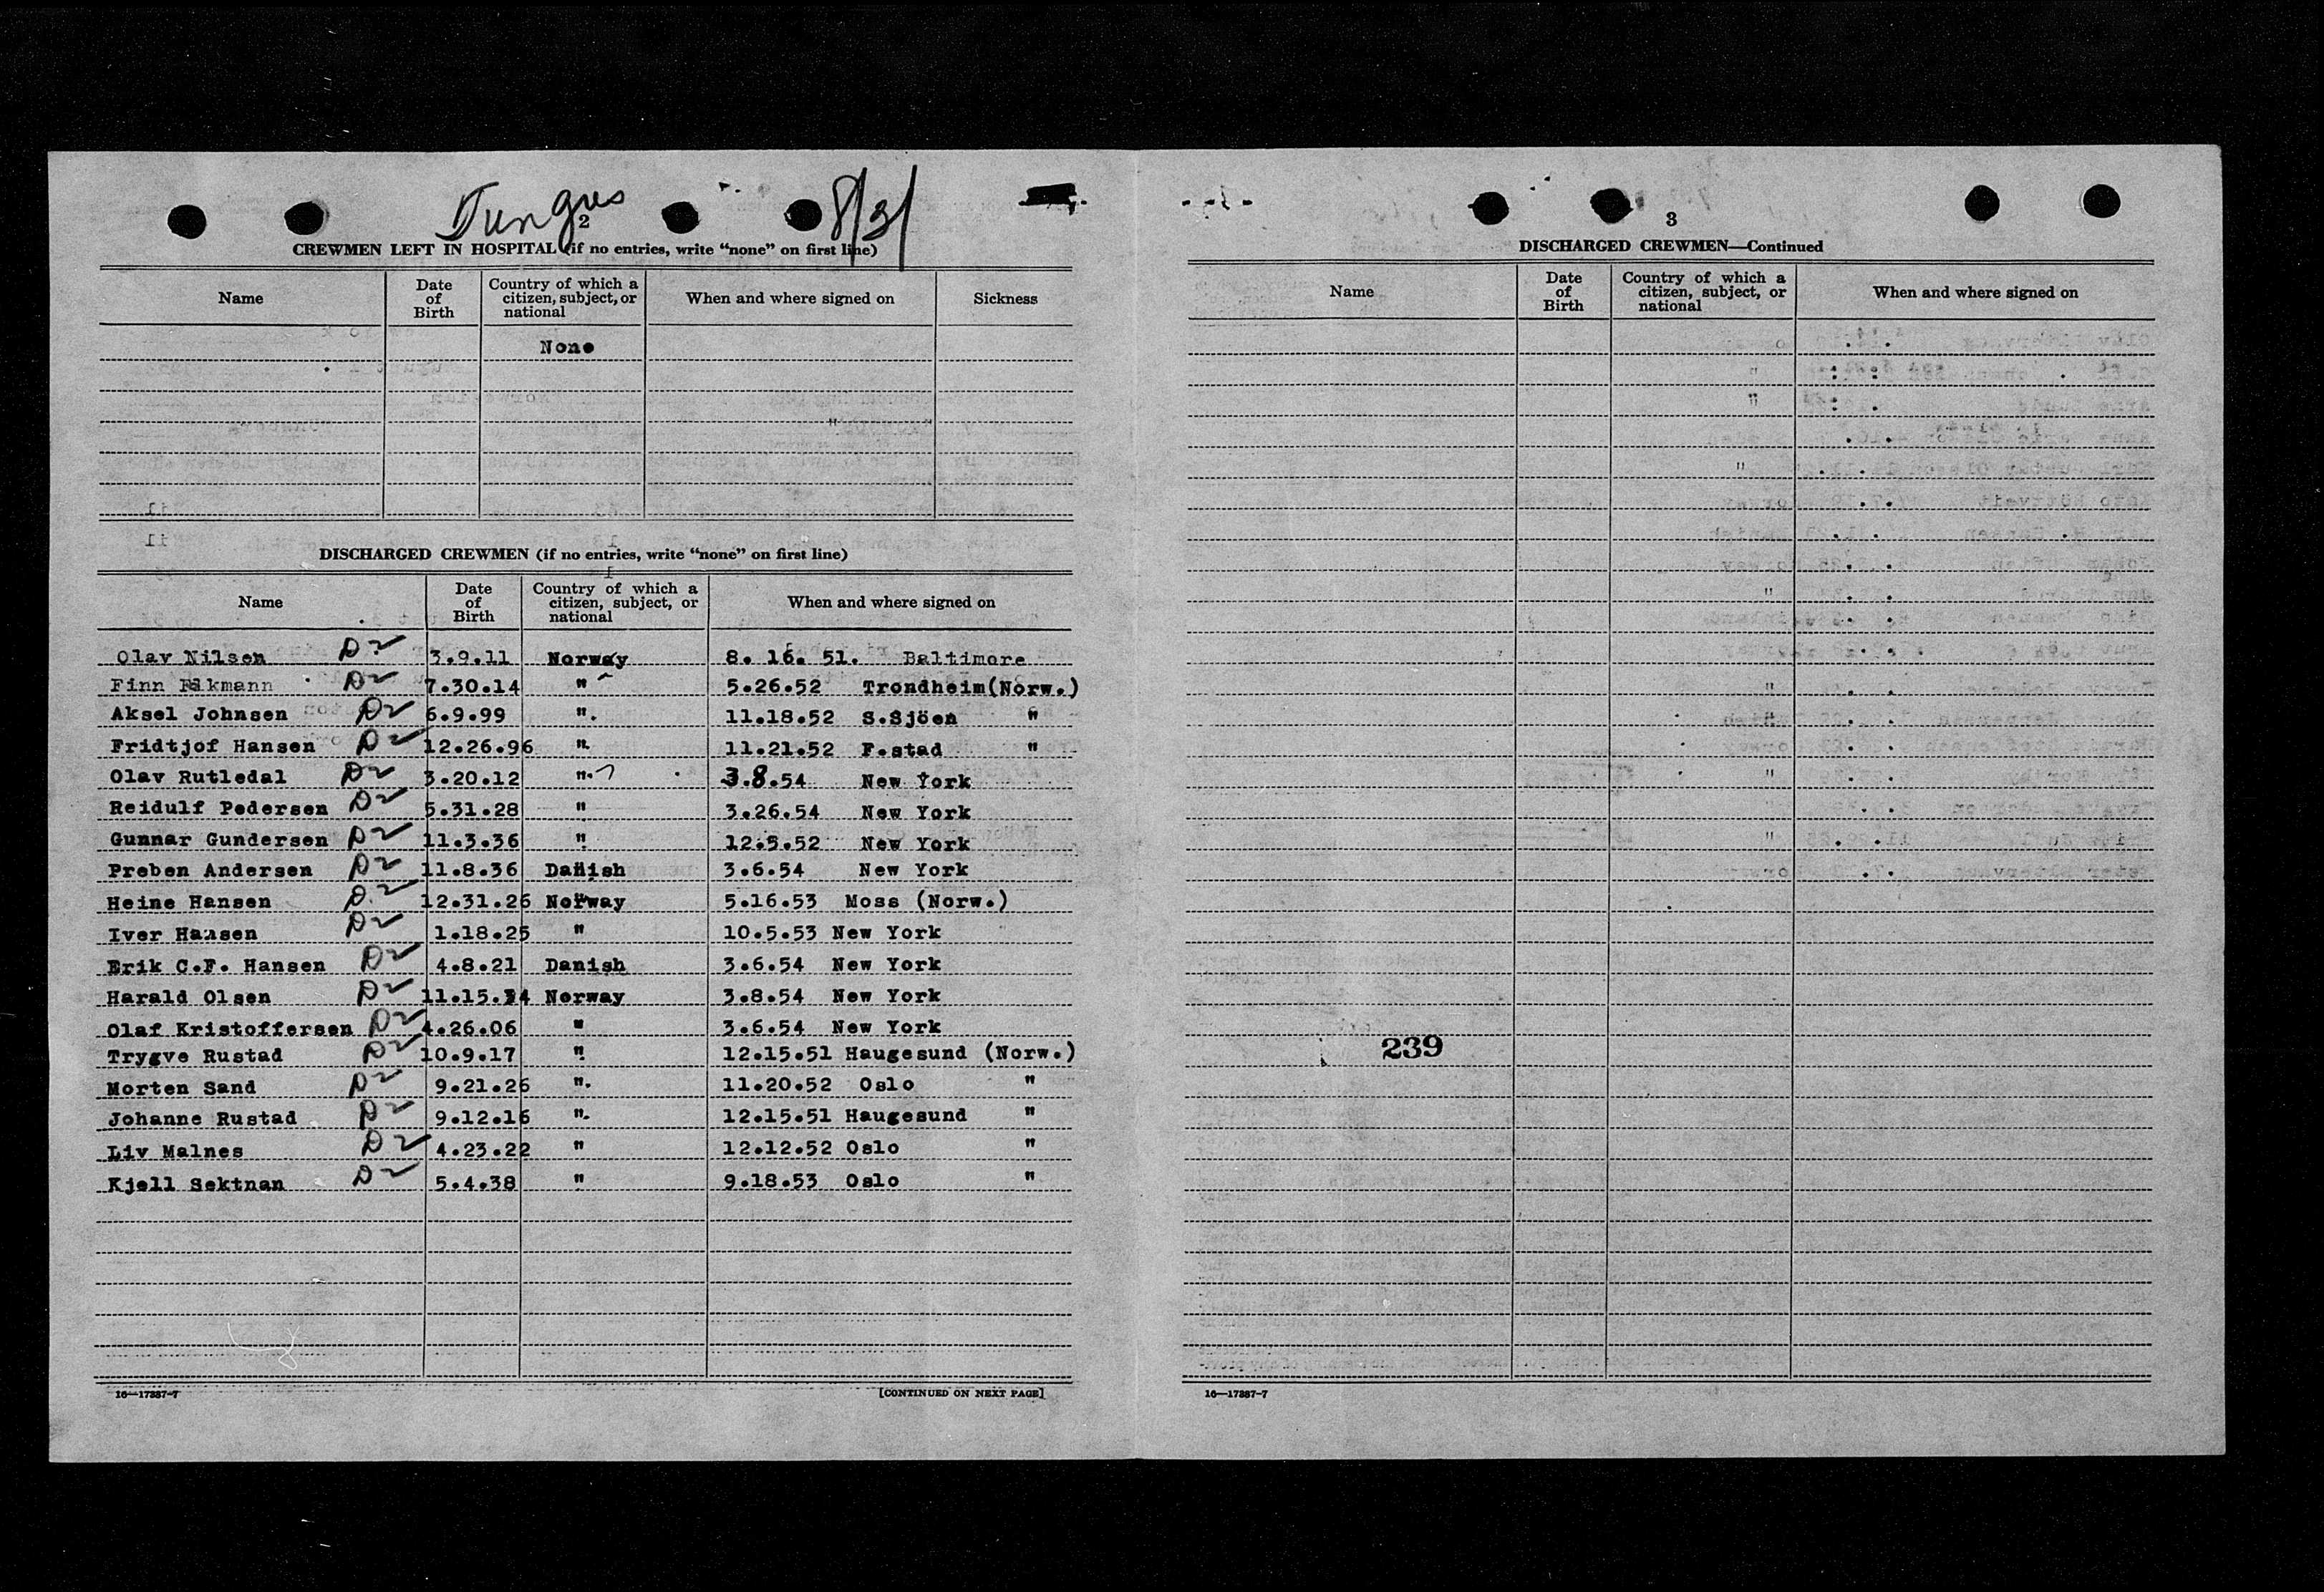 Tungus 8/31
2
CREWMEN LEFT IN HOSPITAL (if no entries, write “none” on first line)
Name Date of Birth Country of which a citizen, subject, or national When and where signed on Sickness
None
DISCHARGED CREWMEN (if no entries, write “none” on first line)
Name Date of Birth Country of which a citizen, subject, or national When and where signed on
Olav Nilsen D2 3.9.11 Norway 8. 16. 51. Baltimore
Finn D2 7.30.14 " 5.26.52 Trondheim(Norw.)
Aksel Johnsen D2 6.9.99 ". 11.18.52 S.Sjöen "
Fridtjof Hansen D2 12.26.96 ". 11.21.52 F.stad "
Olav Rutledal D2 3.20.12 ". 3.8.54 New York
Reidulf Pedersen D2 5.31.28 " 3.26.54 New York
Gunnar Gundersen D2 11.3.36 " 12.5.52 New York
Preben Andersen D2 11.8.36 Danish 3.6.54 New York
Heine Hansen D2 12.31.26 Norway 5.16.53 Moss (Norw.)
Iver Hansen D2 1.18.25 " 10.5.53 New York
Erik C.F. Hansen D2 4.8.21 Danish 3.6.54 New York
Harald Olsen D2 Norway 3.8.54 New York
Olaf Kristoffersen D2 4.26.06 " 3.6.54 New York
Trygve Rustad D2 10.9.17 " 12.15.51 Haugesund (Norw.)
Morten Sand D2 9.21.26 ". 11.20.52 Oslo "
Johanne Rustad D2 9.12.16 ". 12.15.51 Haugesund "
Liv Malnes D2 4.23.22 " 12.12.52 Oslo "
Kjell Sektnan D2 5.4.38 " 9.18.53 Oslo "
16—17887-7 [CONTINUED ON NEXT PAGE]
3
DISCHARGED CREWMEN—Continued
Name Date of Birth Country of which a citizen, subject, or national When and where signed on
239
16—17887-7